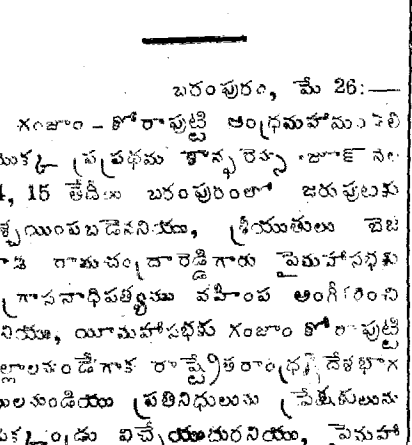 బరంపురం, మే 26:—
గంజాం - కోరాపుట్టి ఆంధ్రమహామండలి
యొక్క ప్రప్రథమ కాన్ఫరెన్సు జూన్ నెల
4, 15 తేదీలు బరంపురంలో జరుపుటకు
శ్చయింపబడెననియు, శ్రీయుతులు బెజ
వాడ రామచంద్రారెడ్డిగారు పైమహాసభకు
గ్రాసనాధిపత్యము వహింప అంగీకరించి
నియు, యీమహాసభకు గంజాం కోరాపుట్టి
ల్లాలనుండేగాక రాష్ట్రేతరాంధ్ర దేశభాగ
ములనుండియు ప్రతినిధులును ప్రేక్షకులును
విచ్చేయుదురనియు, పైమహా